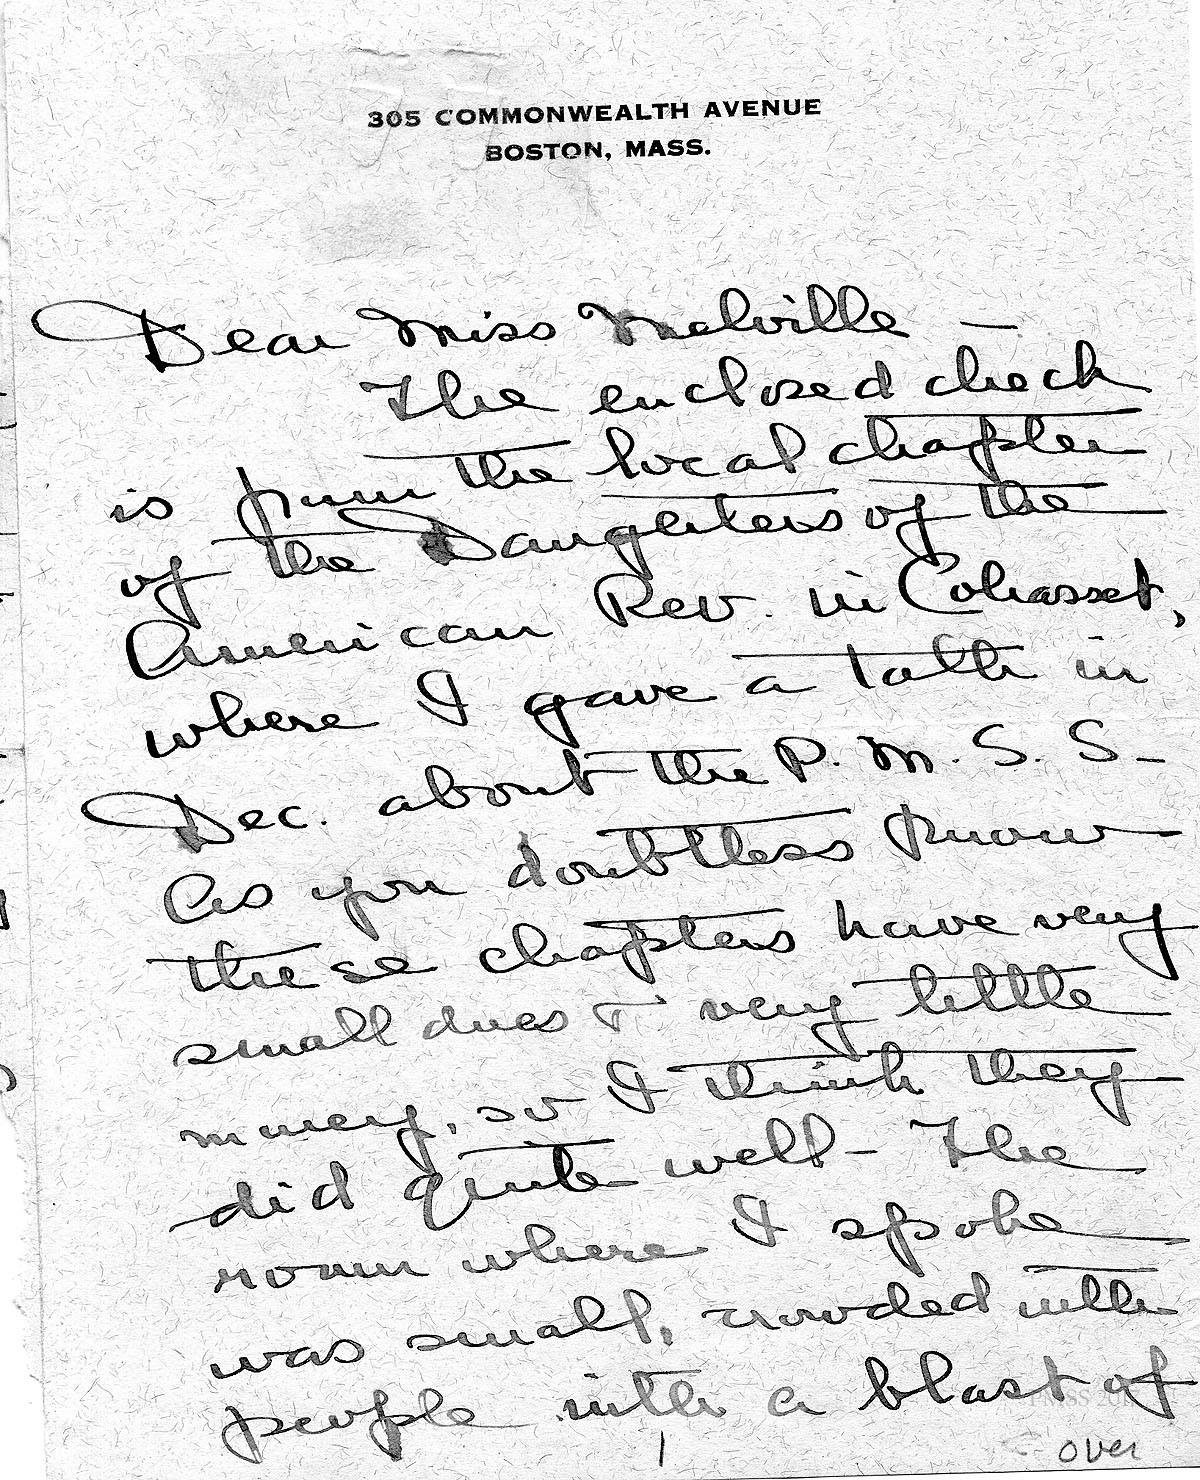 305 COMMONWEALTH AVENUE
BOSTON, MASS.
Dear Miss Melville —
The enclosed check
is from the local chapter
of the Daughters of the
American Rev. in Cohasset,
where I gave a talk in
Dec. about the P. M. S. S. –
As you doubtless know
these chapters have very
small dues & very little
money, so I think they
did quite well – The
room where I spoke
was small, crowded with
people with a blast of
1 over